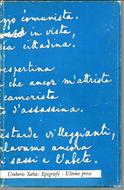 è comunista.
in vista,
ca cittadina.
espertina
che ancor m'attrista
camerista
d'assassina.
estarde s'lleggianti,
lavano ancora
i sassi e l'abete.
Umberto Saba: Epigrafe - Ultime prose